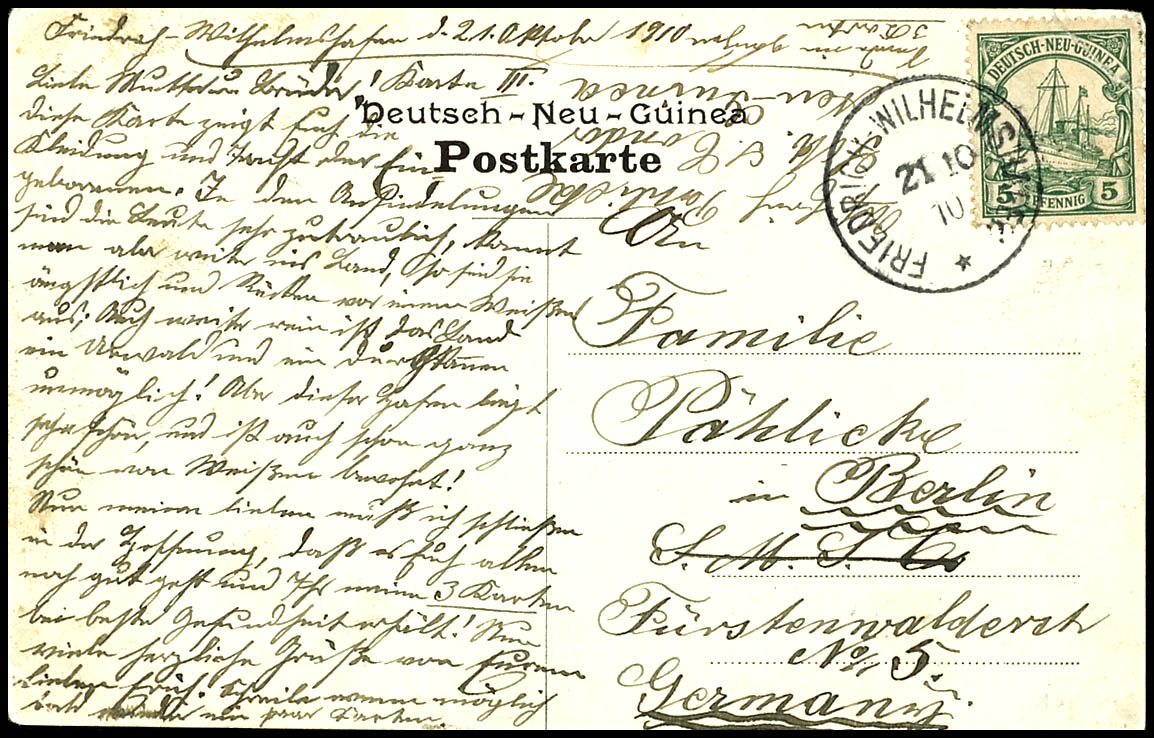 Friedrich-Wilhelmshafen d. 21. Oktober 1910
Liebe Mutter u. Brüder! Karte III.
diese Karte zeigt Euch die
Kleidung und Tracht der Ein-
geborenen. In den Ansiedelungen
sind die Leute sehr zutraulich, kommt
man aber weiter ins Land, so sind sie
ängstlich und rücken vor einem Weißen
aus; Auch weiter rein ist das Land
ein Urwald und ein durch
unmöglich! Aber dieser Hafen liegt
sehr schön, und ist auch schon ganz
schön von Weißen bewohnt!
Nun meine lieben muß ich schließen
in der Hoffnung, daß es Euch allen
noch gut geht und Ihr meine 3 Karten
bei bester Gesundheit erhält! Nun
viele herzliche Grüße von Eurem
lieben Erich. Schreibe wenn möglich
bald wieder ein paar Karten.
3 Karten
Neu-Guinea
Deutsch-Neu-Guinea
Postkarte
An
Familie
Pählicke
in Berlin
S.M.S.
Fürstenwalderstr
No 5.
Germany.
DEUTSCH-NEU-GUINEA
5 PFENNIG 5
FRIEDRICH WILHELMSHAFEN
21 10
10